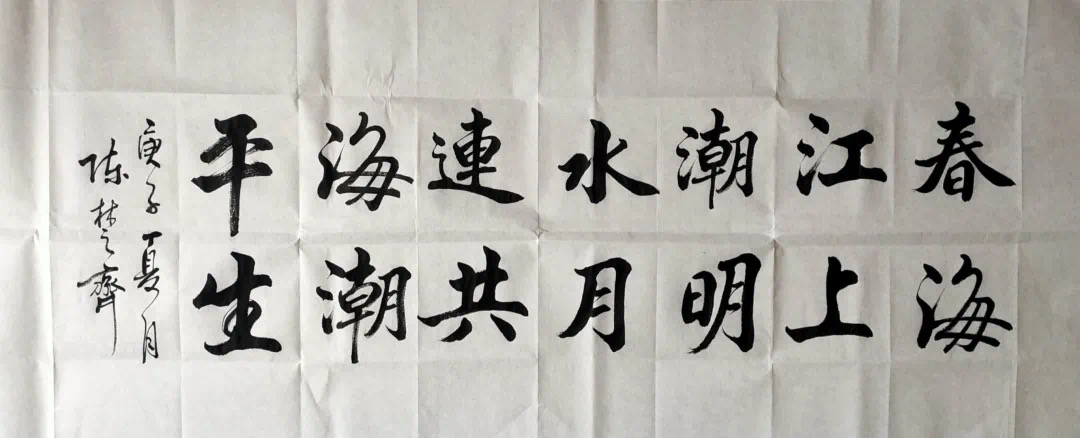 春江潮水連海平
海上明月共潮生
庚子夏月
陈楚齊